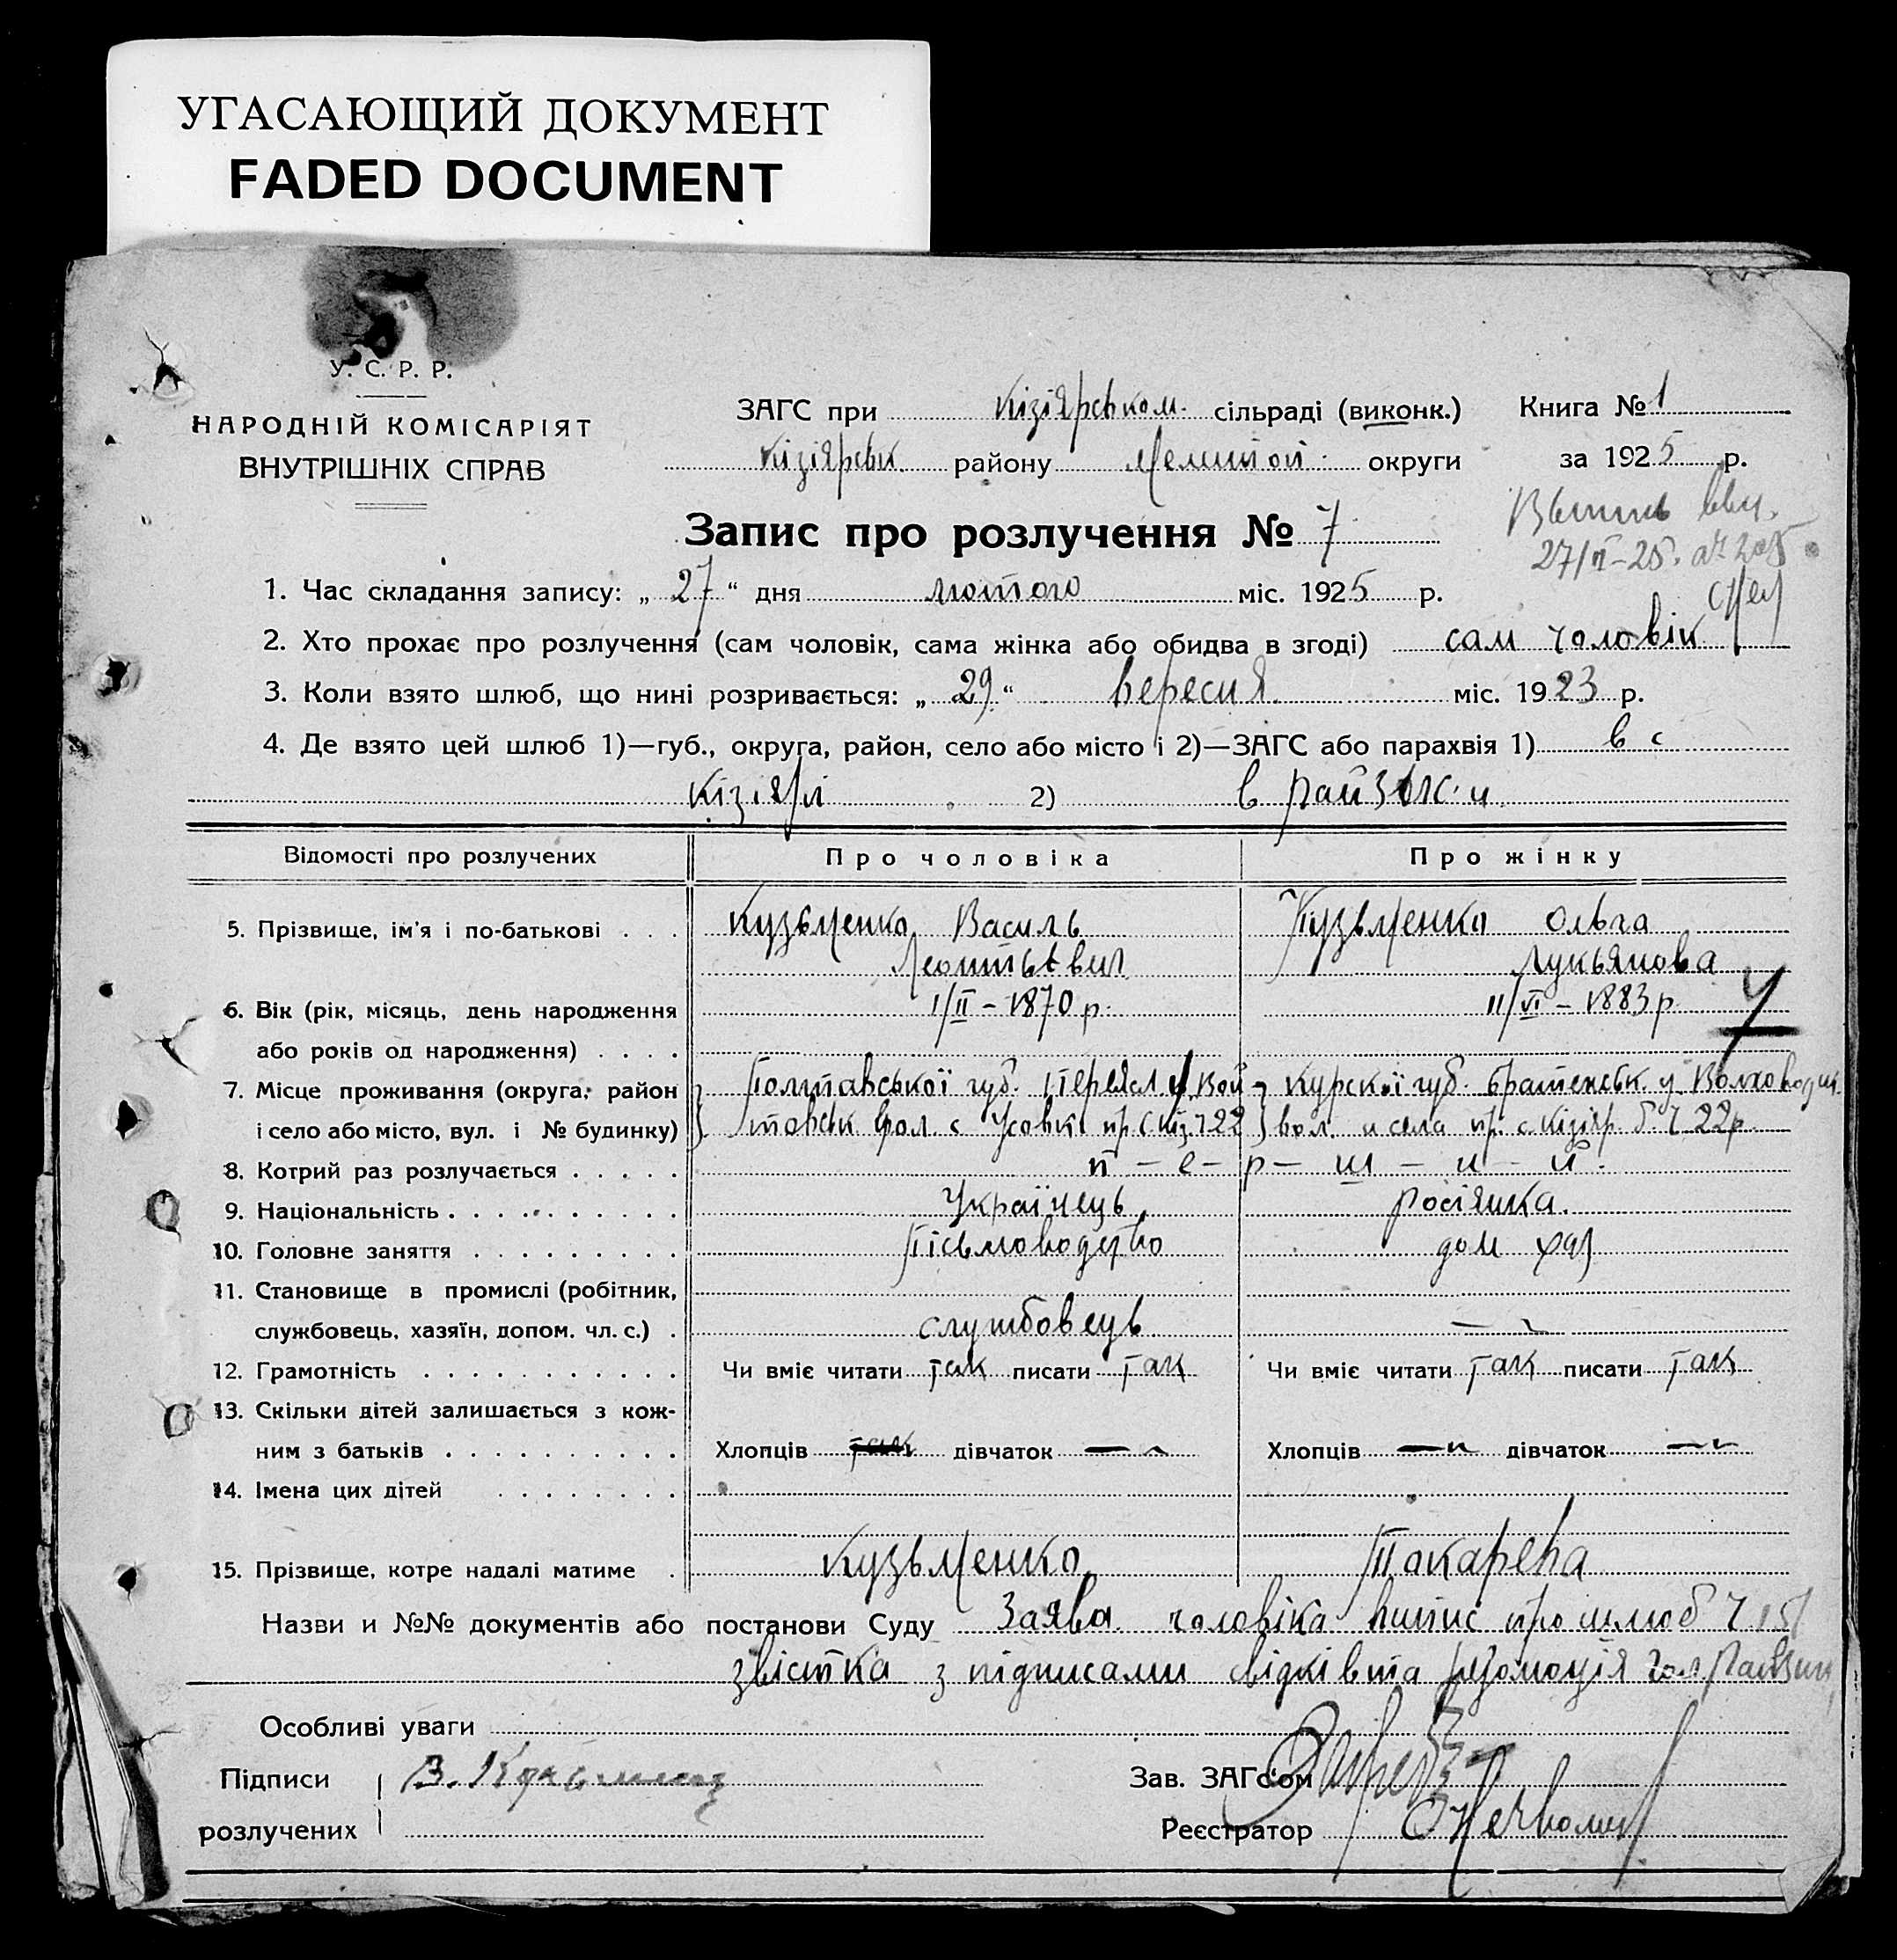 УГАСАЮЩИЙ ДОКУМЕНТ
FADED DOCUMENT
У. С. Р. Р.
НАРОДНІЙ КОМІСАРІЯТ
ВНУТРІШНІХ СПРАВ
ЗАГС при Кізіярськом. сільраді (виконк.) Книга № 1
Кізіярськ. району Мелітоп. округи за 1925 р.
27/II-25.
Запис про розлучення № 7
1. Час складання запису: „ 27 “ дня лютого міс. 1925 р.
2. Хто прохає про розлучення (сам чоловік, сама жінка або обидва в згоді) сам чоловік
3. Коли взято шлюб, що нині розривається: „ 29 “ вересня міс. 1923 р.
4. Де взято цей шлюб 1)—губ., округа, район, село або місто і 2)—ЗАГС або парахвія 1) в с
Кізіярі 2) в
Відомості про розлучених Про чоловіка Про жінку
5. Прізвище, ім'я і по-батькові . . . Кузьменко Василь Кузьменко Ольга
Лукьянова
6. Вік (рік, місяць, день народження 1/II – 1870 р. 11/VI – 1883 р.
або років од народження) . . . .
7. Місце проживання (округа, район Полтавської губ. Переясл. у. Курскої губ. у
і село або місто, вул. і № будинку) вол. с Усовк. вол. 22 р.
8. Котрий раз розлучається . . . . . п – е – р – ш – и – й.
9. Національність . . . . . . . . . . Українець. росіянка.
10. Головне заняття . . . . . . . . . Пісьмоводство дом хаз
11. Становище в промислі (робітник,
службовець, хазяїн, допом. чл. с.) . службовець
12. Грамотність . . . . . . . . . . . Чи вміє читати так писати так Чи вміє читати так писати так
13. Скільки дітей залишається з кож-
ним з батьків . . . . . . . . . . Хлопців дівчаток Хлопців дівчаток
14. Імена цих дітей . . . . . . . .
15. Прізвище, котре надалі матиме . Кузьменко Токарева
Назви и №№ документів або постанови Суду Заява чоловіка випис про шлюб Ч 151
звістка з підписами свідків та резолюція
Особливі уваги
Підписи В. Кузьменко Зав. ЗАГс'ом
розлучених Реєстратор